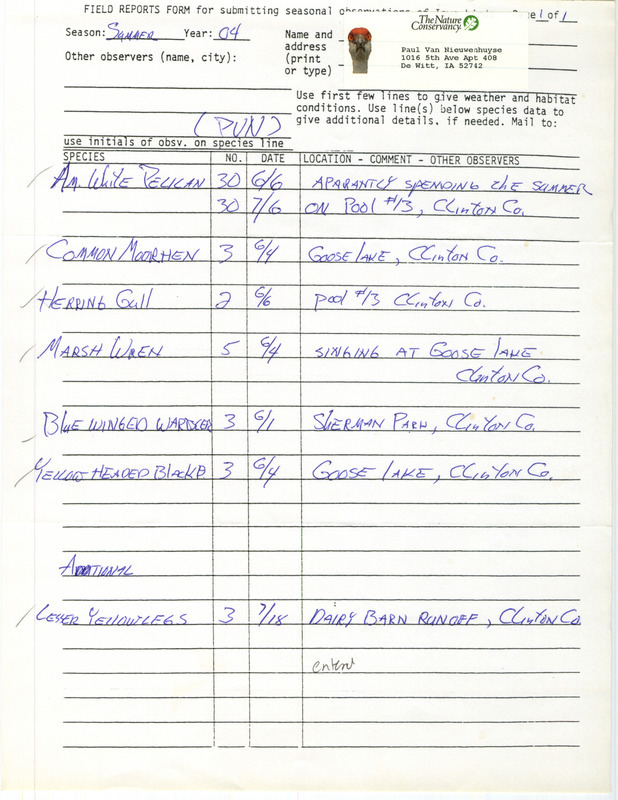 FIELD REPORTS FORM for submitting seasonal observations of Page 1 of 1
Season: SUMMER Year: 04
Name and address (print or type)
The Nature Conservancy
Paul Van Nieuwenhuyse
1016 5th Ave Apt 408
De Witt, IA 52742
Other observers (name, city):
Use first few lines to give weather and habitat
conditions. Use line(s) below species data to
give additional details, if needed. Mail to:
(PVN)
use initials of obsv. on species line
SPECIES NO. DATE LOCATION - COMMENT - OTHER OBSERVERS
Am. White Pelican 30 6/6 APARANTLY SPENDING the SUMMER
30 7/6 ON Pool #13, Clinton Co.
Common Moorhen 3 6/4 Goose lake, Clinton Co.
Herring Gull 2 6/6 Pool #13 Clinton Co.
Marsh Wren 5 6/4 SINGING AT Goose lake
Clinton Co.
Blue winged warbler 3 6/1 Sherman Park, Clinton Co.
Yellow Headed Blackb. 3 6/4 Goose lake, Clinton Co.
Additional
Lesser Yellowlegs 3 7/18 Dairy Barn Runoff, Clinton Co.
entered